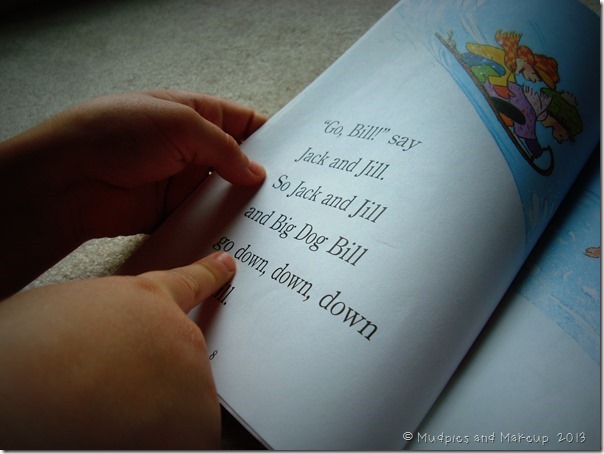 “Go, Bill!” say
Jack and Jill.
So Jack and Jill
and Big Dog Bill
go down, down, down
8
© Mudpies and Makeup 2013